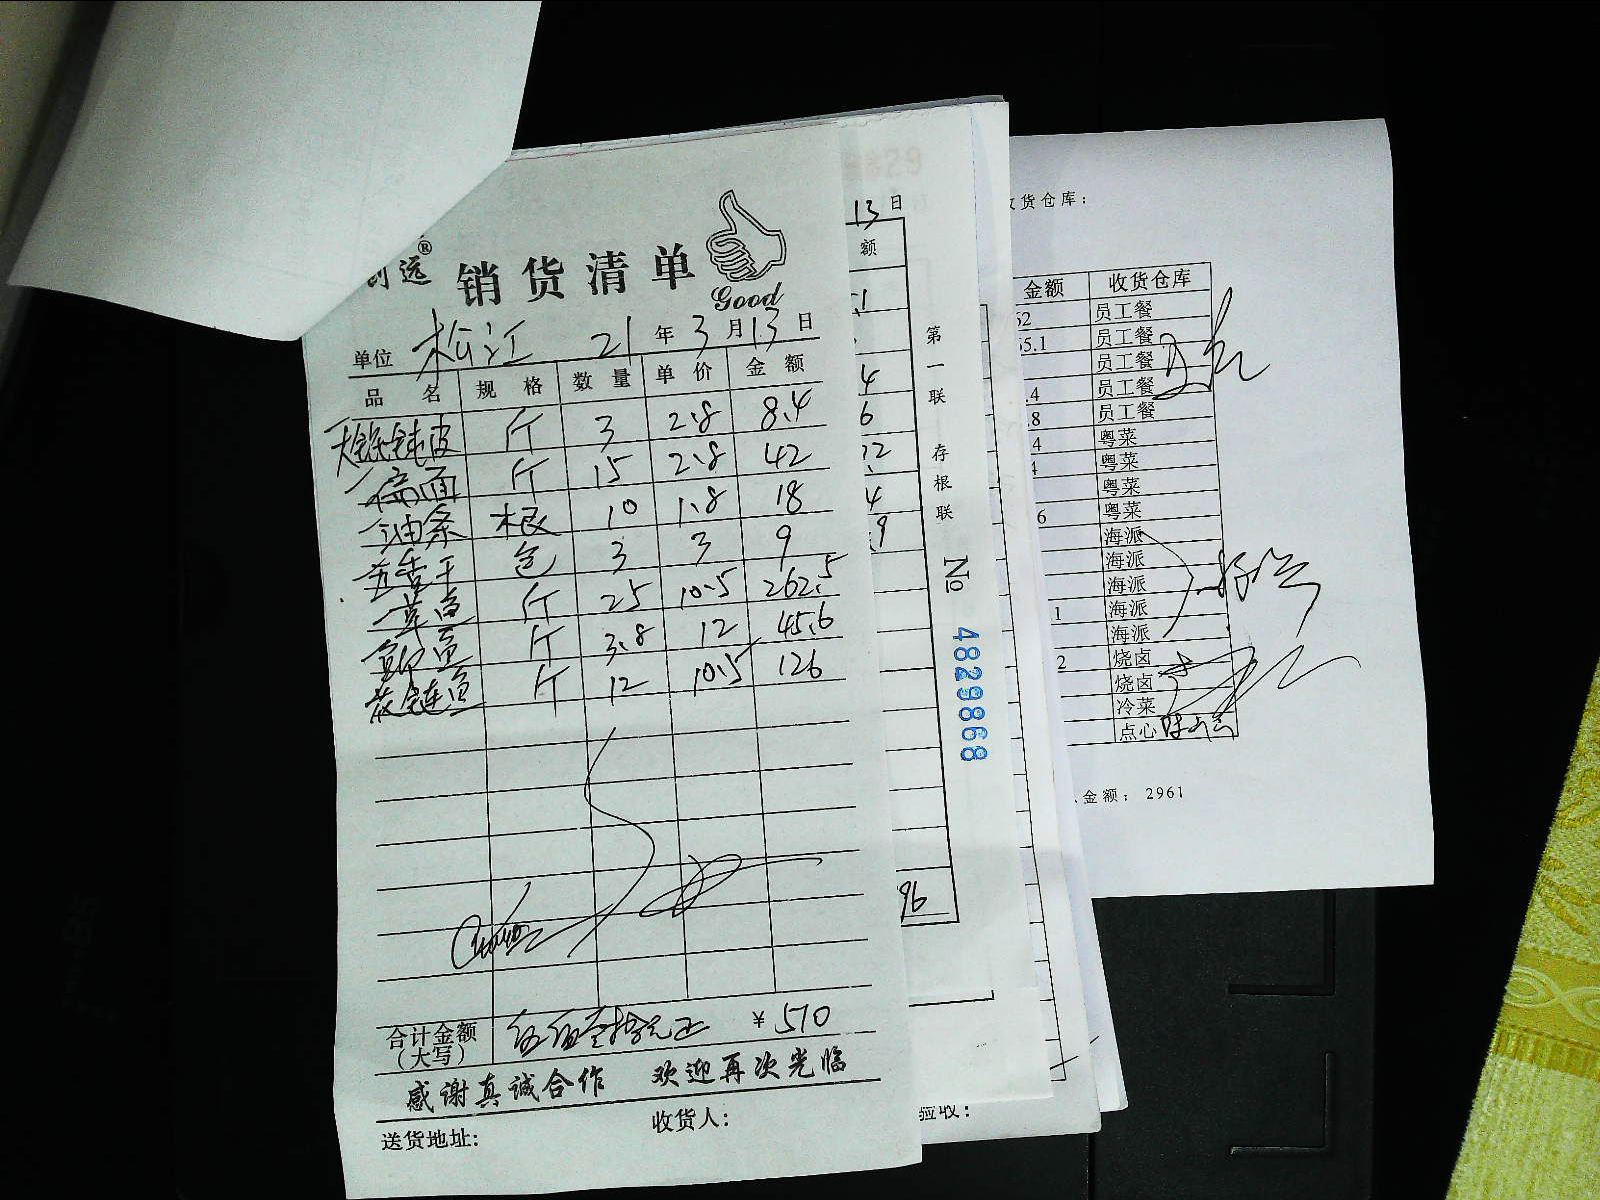 创远® 销货清单
Good
单位 松江 21年3月13日
品名 规格 数量 单价 金额
大馄饨皮 斤 3 2.8 8.4
面 斤 15 2.8 42
油条 根 10 1.8 18
五香干 包 3 3 9
草鱼 斤 25 10.5 262.5
斤 3.8 12 45.6
花鲢鱼 斤 12 10.5 126
合计金额（大写） 伍佰壹拾元正 ¥510
感谢真诚合作 欢迎再次光临
收货人：
送货地址：
13日
额
.1
4
6
22
4
.9
96
第一联 存根联
No 4829868
验收：
收货仓库：
金额 收货仓库
62 员工餐
65.1 员工餐
员工餐
.4 员工餐
.8 员工餐
4 粤菜
4 粤菜
粤菜
6 粤菜
海派
海派
海派
1 海派
海派
2 烧卤
烧卤
冷菜
点心
金额：2961